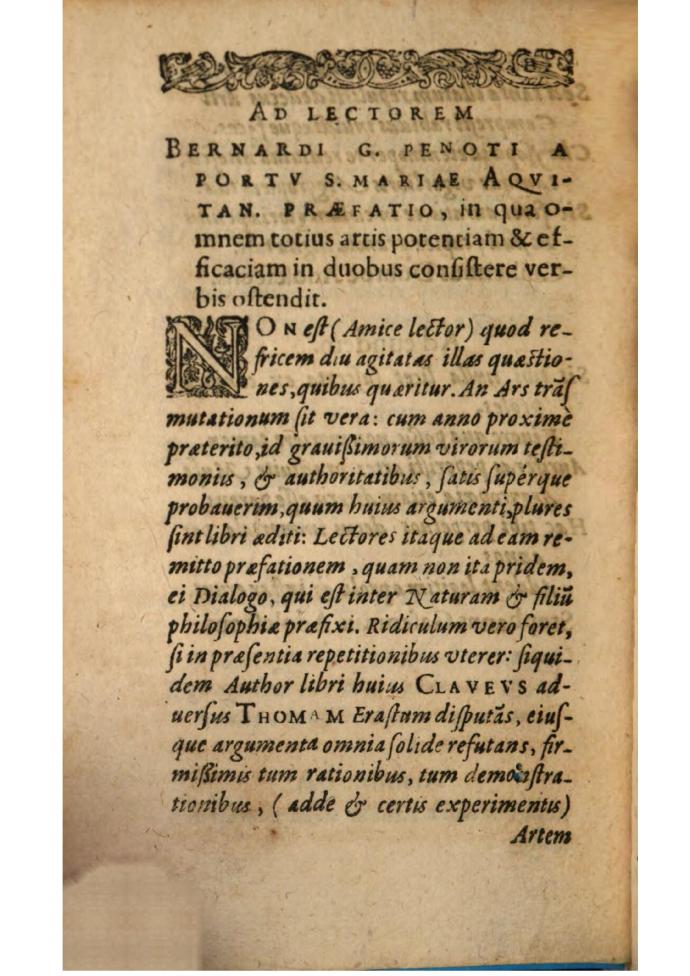 AD LECTOREM
BERNARDI G. PENOTI A
PORTV S. MARIAE AQVI-
TAN. PRÆFATIO, in qua o-
mnem totius artis potentiam & ef-
ficaciam in duobus consistere ver-
bis ostendit.
NON est (Amice lector) quod re-
fricem diu agitatas illas quæstio-
nes, quibus quæritur. An Ars trãs
mutationum sit vera: cum anno proximè
præterito, id grauißimorum virorum testi-
moniis, & authoritatibus, satis supérque
probauerim, quum huius argumenti, plures
sint libri æditi: Lectores itaque ad eam re-
mitto præfationem, quam non ita pridem,
ei Dialogo, qui est inter Naturam & filiũ
philosophiæ præfixi. Ridiculum vero foret,
si in præsentia repetitionibus vterer: siqui-
dem Author libri huius CLAVEVS ad-
uersus THOMAM Erastum disputãs, eius-
que argumenta omnia solide refutans, fir-
mißimis tum rationibus, tum demonstra-
tionibus, (adde & certis experimentis)
Artem